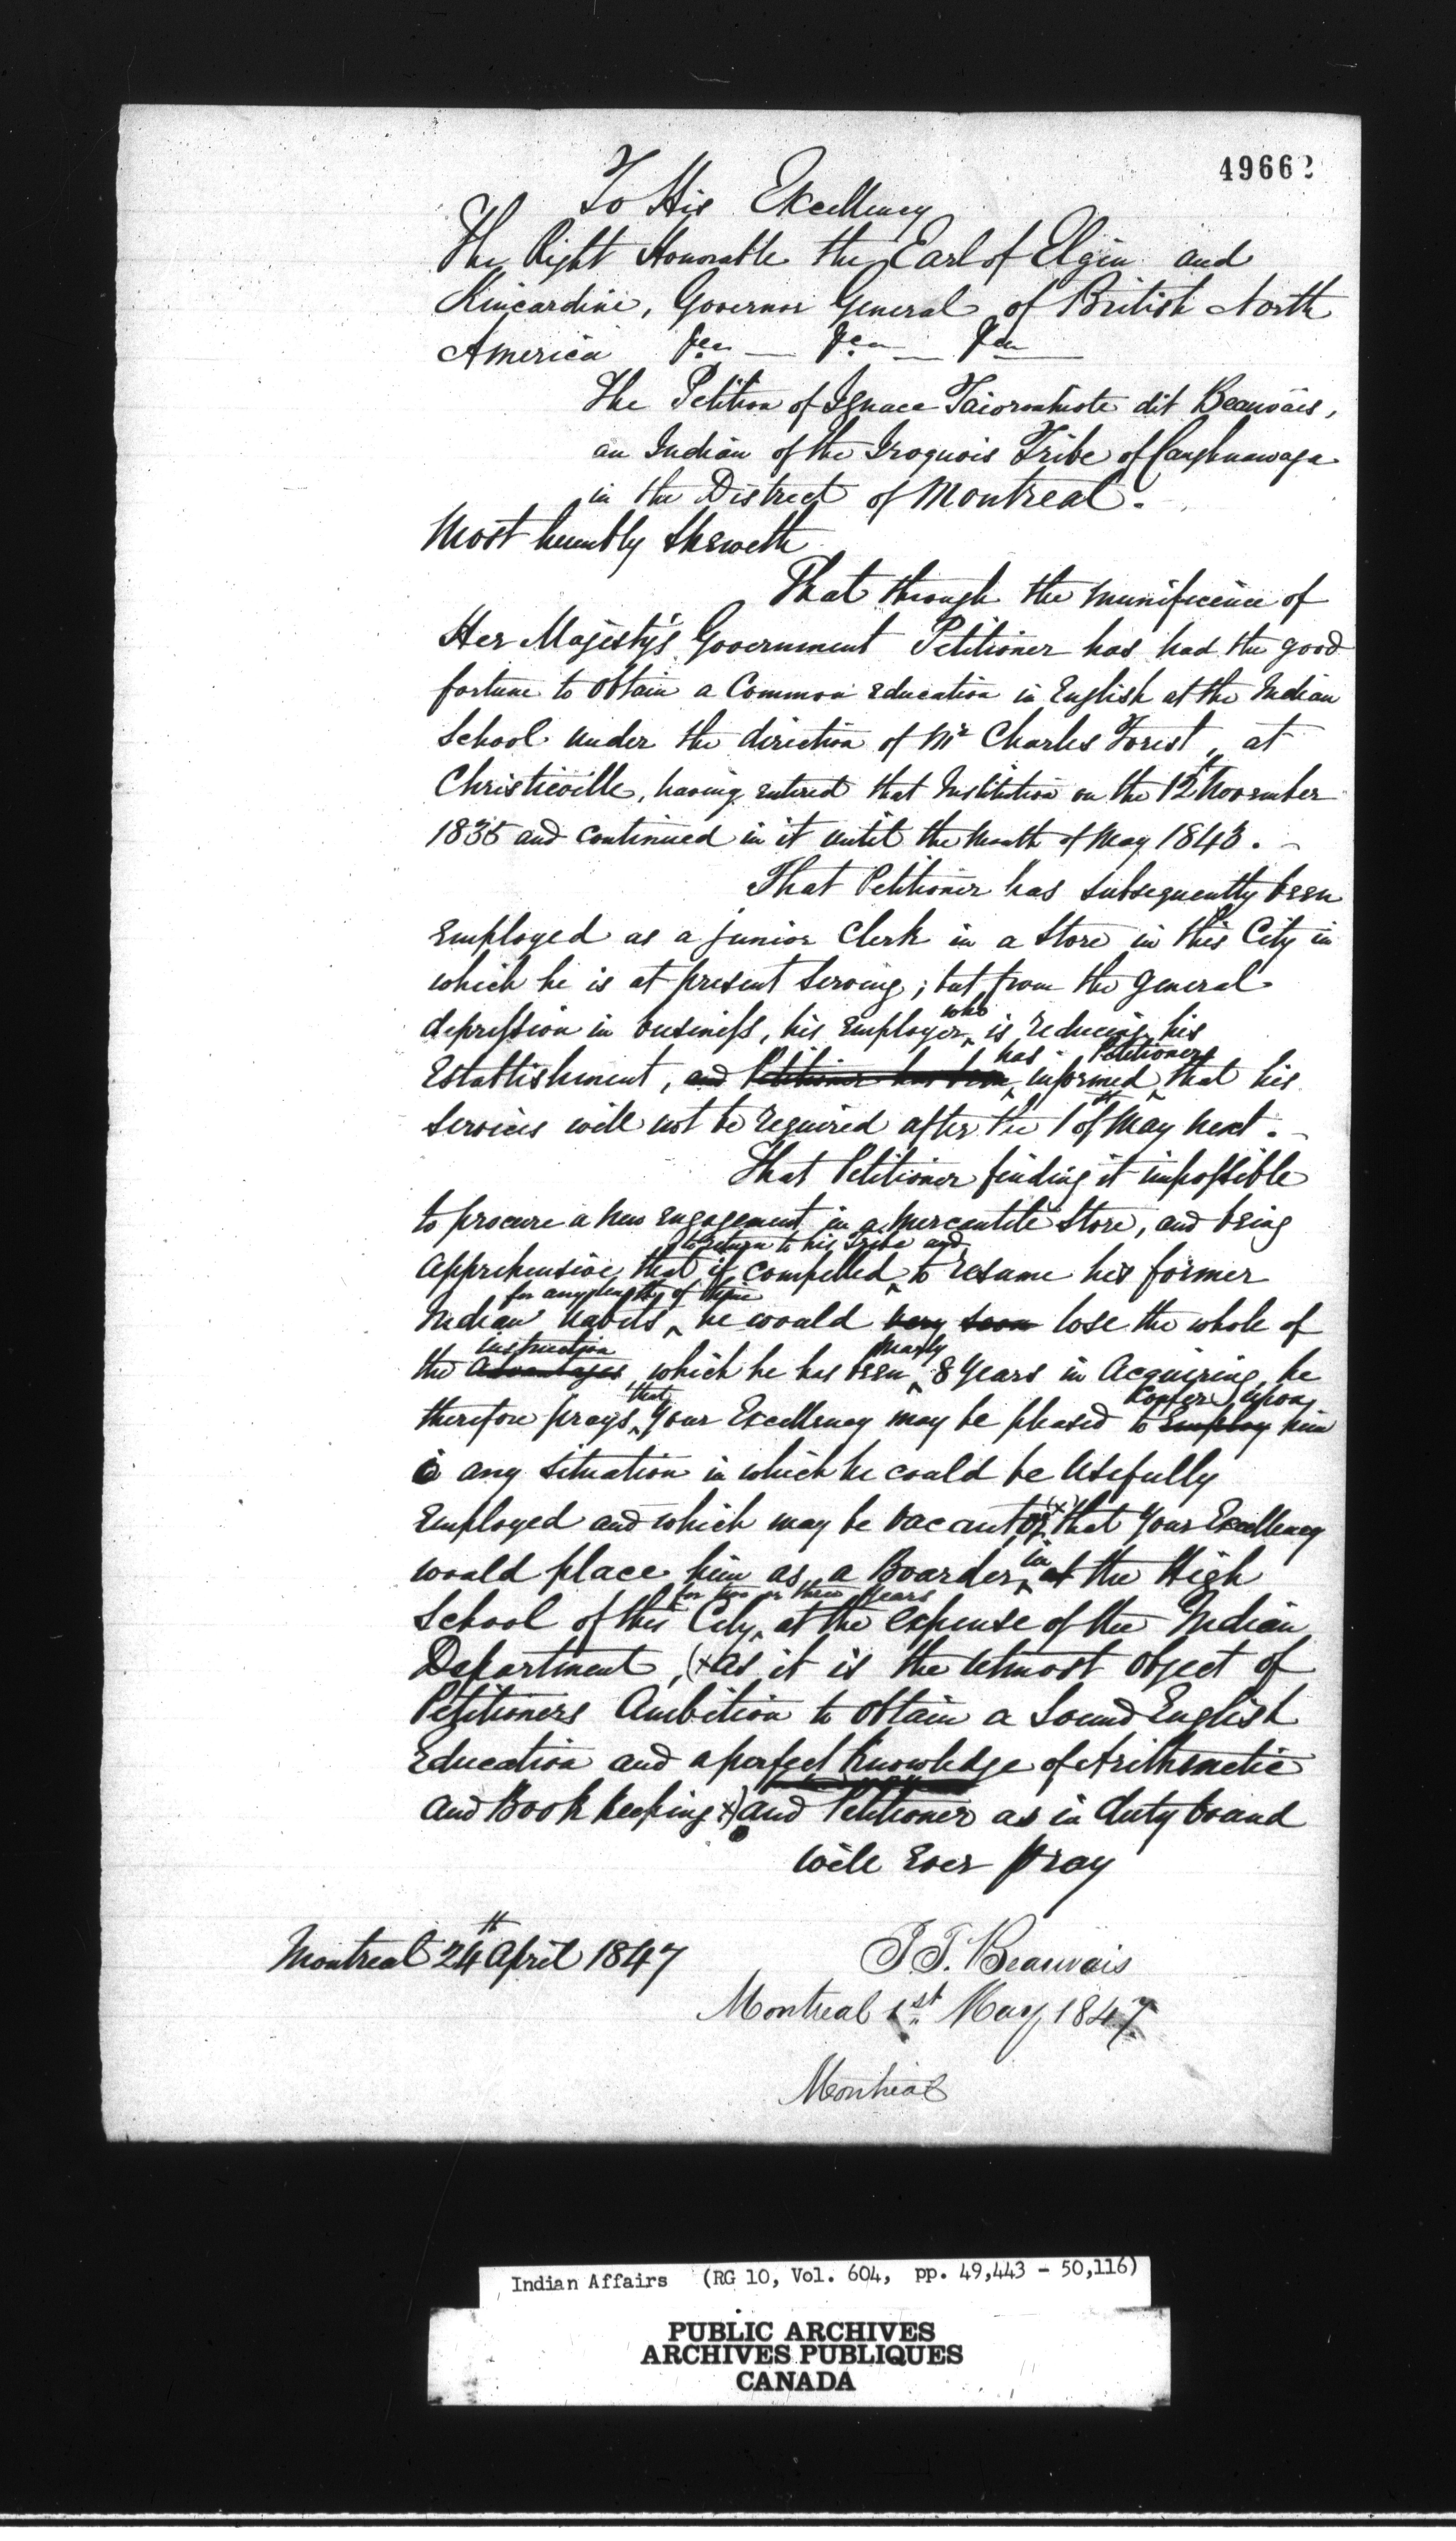 49662
To His Excellency
The Right Honorable the Earl of Elgin and
Kincardine, Governor General of British North
America &ca — &ca — &ca —
The Petition of Ignace dit Beauvais,
an Indian of the Iroquois Tribe of Caughnawaga
in the District of Montreal.
Most humbly Sheweth
That through the munificence of
Her Majesty's Government Petitioner has had the good
fortune to obtain a Common Education in English at the Indian
School under the direction of Mr Charles Forest, at
Christieville, having entered that Institution on the 12th November
1835 and continued in it until the Month of May 1843. -
That Petitioner has subsequently been
Employed as a junior Clerk in a Store in this City in
which he is at present serving; but from the general
who
depression in business, his Employer, is reducing his
has Petitioner
Establishment, and Petitioner has been informed that his
Services will not be required after the 1st of May next. -
That Petitioner finding it impossible
to procure a new engagement in a Mercantile Store, and being
to return to his Tribe and
Apprehensive that if compelled to resume his former
for any length of time
Indian habits, he would very soon lose the whole of
instruction nearly
the Advantages which he has been 8 Years in Acquiring, he
that Confer upon
therefore prays Your Excellency may be pleased to Employ him
any situation in which he could be Usefully
Employed and which may be vacant or (x) that Your Excellency
in
would place him as a Boarder at the High
for two or three Years
School of this City, at the expense of the Indian
Department, (x as it is the utmost object of
Petitioners Ambition to obtain a Sound English
Education and a perfect Knowledge of Arithmetic
and Book keeping x) and Petitioner as in duty bound
will Ever pray
Montreal 24th April 1847
I. T. Beauvais
Montreal 1st May 1847
Montreal
Indian Affairs (RG 10, Vol. 604, pp. 49,443 - 50,116)
PUBLIC ARCHIVES
ARCHIVES PUBLIQUES
CANADA